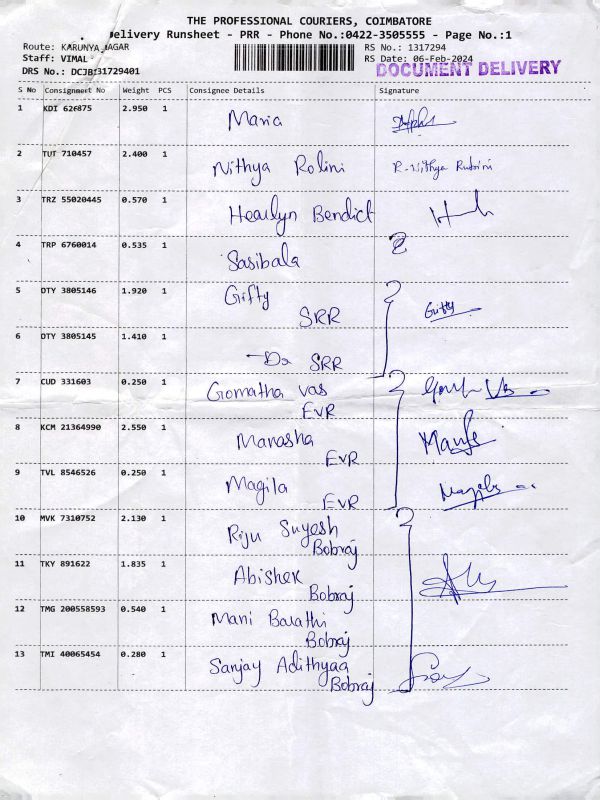 THE PROFESSIONAL COURIERS, COIMBATORE
Delivery Runsheet - PRR - Phone No.:0422-3505555 - Page No.:1
Route: KARUNYA NAGAR
RS No.: 1317294
Staff: VIMAL
RS Date: 06-Feb-2024
DRS No.: DCJB131729401
DOCUMENT DELIVERY
S No Consignment No Weight PCS Consignee Details Signature
1 KDI 626875 2.950 1 Maria
2 TUT 710457 2.400 1 Nithya Rolini R. Nithya
3 TRZ 55020445 0.570 1 Heavlyn Bendict
4 TRP 6760014 0.535 1 Sasibala
5 DTY 3805146 1.920 1 Gifty Gifty
SRR
6 DTY 3805145 1.410 1
Do SRR
7 CUD 331603 0.250 1 Gomatha vas
EVR
8 KCM 21364990 2.550 1 Manasha
EVR
9 TVL 8546526 0.250 1 Magila
EVR
10 MVK 7310752 2.130 1 Riju Suyesh
Bobraj
11 TKY 891622 1.835 1 Abishek
Bobraj
12 TMG 200558593 0.540 1 Mani Barathi
Bobraj
13 TMI 40065454 0.280 1 Sanjay Adithyaa
Bobraj